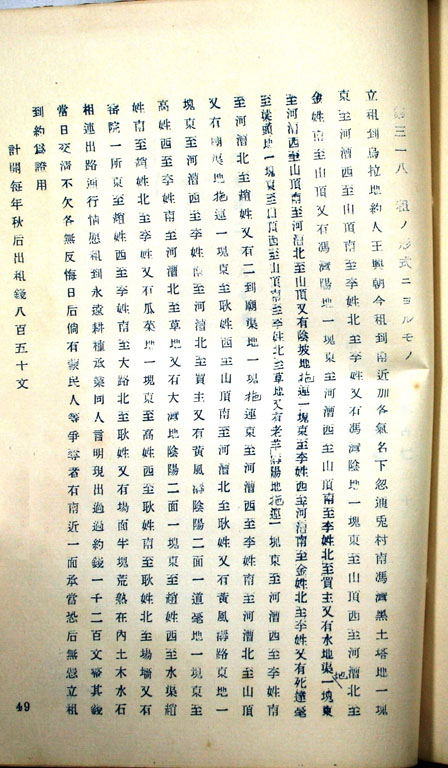 第三一八　租ノ形式ニヨルモノ
立租到烏拉地約人王興朝今租到南近加各氣名下忽速兎村南馮灣黑土塔地一塊
東至河漕西至山頂南至李姓北至李姓又有馮灣陰地一塊東至山頂西至河漕北至
金姓南至山頂又有馮灣陽地一塊東至河漕西至山頂南至李姓北至買主又有水地渠地一塊東
至河漕西至山頂南至河漕北至山頂又有陰坡地拖連一塊東至李姓西至河漕南至金姓北至李姓又有死達毫
至墳頭地一塊東至山頂西至山頂南至李姓北至草地又有老羊壕陽地拖連一塊東至河漕西至李姓南
至河漕北至趙姓又有二到廟渠地一塊地拖連東至河漕西至李姓南至河漕北至山頂
又有廟尾地拖連一塊東至耿姓西至山頂南至河漕北至耿姓又有黃風壕路東地一
塊東至李姓西至李姓南至河漕北至買主又有黃風壕陰陽二面一道毫地一塊東至
高姓西至李姓南至河漕北至草地又有大灣地陰陽二面一塊東至趙姓西至水渠
姓南至趙姓北至李姓又有瓜菜地一塊東至高姓西至李姓南至耿姓北至場墻又有
窰院一所東至趙姓西至李姓南至大路北至耿姓又有場面半塊荒熟在內土木水石
相連出路通行情愿租到永遠耕種承業同人言明現出過過約錢一千二百文整其錢
當日交淸不欠各無反悔日后倘有蒙民人等爭奪者有南近一面承當恐后無憑立租
到約爲證用
計開每年秋后出租錢八百五十文
49